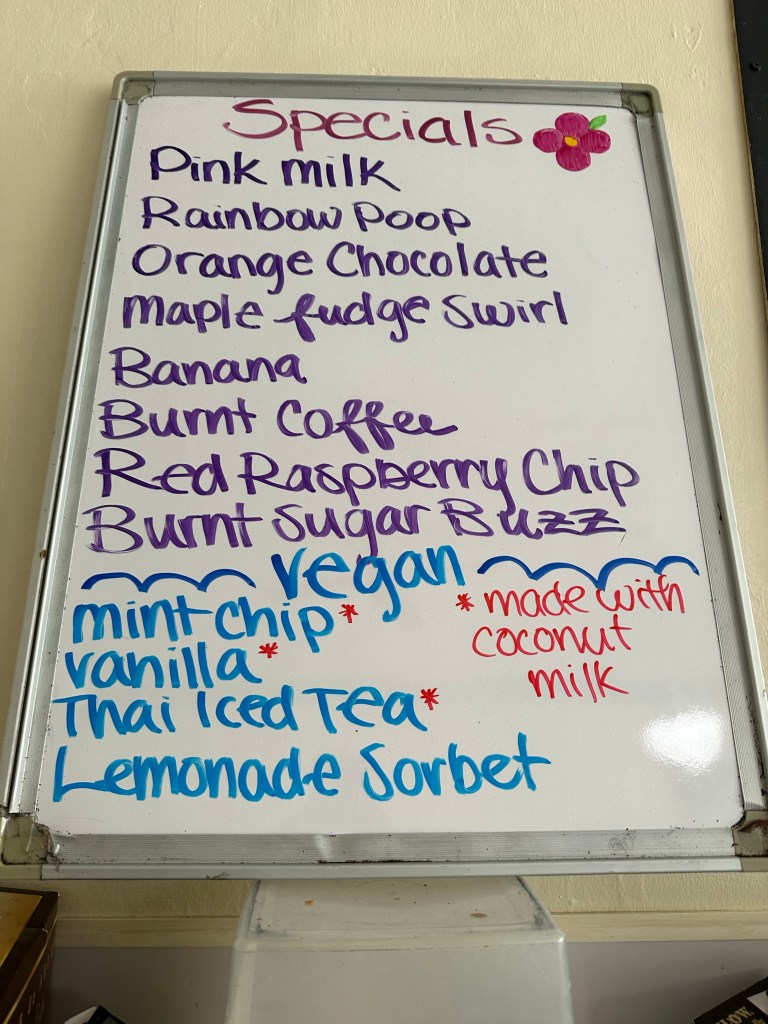 Specials
Pink milk
Rainbow Poop
Orange Chocolate
maple fudge swirl
Banana
Burnt Coffee
Red Raspberry Chip
Burnt Sugar Buzz
vegan
mint chip*
vanilla*
Thai Iced Tea*
Lemonade Sorbet
* made with
coconut
milk